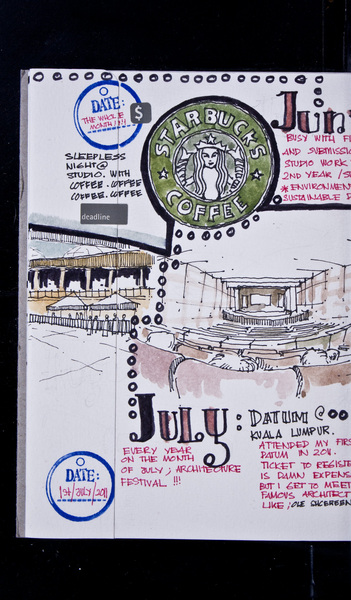 DATE:
THE WHOLE
MONTH!!!
$
SLEEPLESS
NIGHT@
STUDIO. WITH
COFFEE. COFFEE
COFFEE. COFFEE
deadline
STARBUCKS
COFFEE
BUSY WITH
AND SUBMISSI
STUDIO WORK
2ND YEAR /
*ENVIRONMEN
SUSTAINABLE
July:
DATUM @
KUALA LUMPUR.
EVERY YEAR
ON THE MONTH
OF JULY; ARCHITECTURE
FESTIVAL !!!
ATTENDED MY FIRS
DATUM IN 2011.
TICKET TO REGISTE
IS DAMN EXPENS
BUT I GET TO MEET
FAMOUS ARCHITECT
LIKE; OLE SHCEREEN
DATE:
1ST/JULY/2011